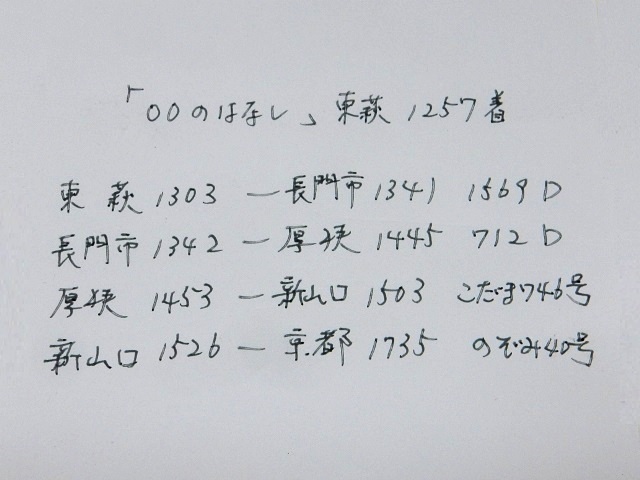 「〇〇のはなし」東萩 1257着
東萩 1303 ー 長門市 1341 1569D
長門市 1342 ー 厚狭 1445 712D
厚狭 1453 ー 新山口 1503 こだま746号
新山口 1526 ー 京都 1735 のぞみ40号